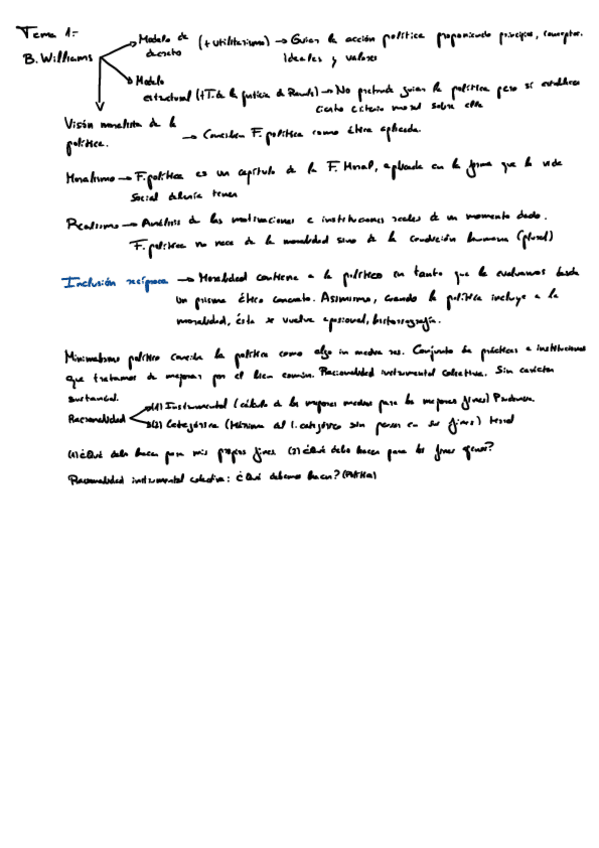 Tema 1:-
B. Williams
Modelo de decreto (+ utilitarismo) → Guían la acción política proponiendo principios, conceptos, ideales y valores
Modelo estructural (+ T. de la justicia de Rawls) → No pretende guiar la política pero sí establecer cierto criterio moral sobre ella
Visión moralista de la política. → Conciben F. política como ética aplicada.
Moralismo → F. política es un capítulo de la F. Moral, aplicada en la forma que la vida
social debería tener
Realismo → Análisis de las motivaciones e instituciones reales de un momento dado.
F. política no nace de la moralidad sino de la condición humana (plural)
Inclusión recíproca → Moralidad contiene a la política en tanto que la evaluamos desde
un prisma ético concreto. Asimismo, cuando la política incluye a la
moralidad, ésta se vuelve
Minimalismo político concibe la política como algo in media res. Conjunto de prácticas e instituciones
que tratamos de mejorar por el bien común. Racionalidad instrumental colectiva. Sin carácter
sustancial.
Racionalidad
(1) Instrumental (cálculo de los mejores medios para los mejores fines) Prudencia
(2) Categórica (Máxima del I. categórico sin pensar en sus fines) Moral
(1) ¿Qué debo hacer para mis propios fines (2) ¿Qué debo hacer para los fines
Racionalidad instrumental colectiva: ¿Qué debemos hacer? (Política)